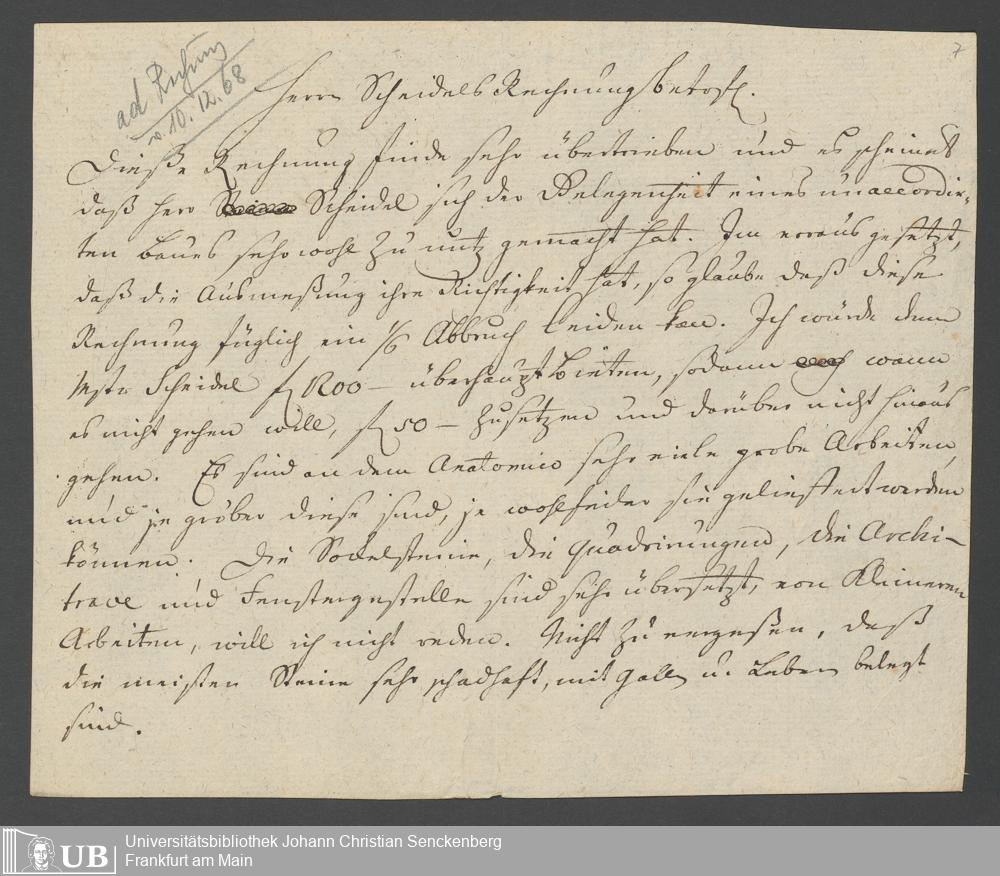 7
ad Rechnung
v. 10. 12. 68
Herrn Scheidels Rechnung betrefl.
Dieße Rechnung finde sehr übertrieben und es scheinet
daß Herr Scheidel sich der Gelegenheit eines unaccordir-
ten Baues sehr wohl zu nutz gemacht hat. Im voraus gesetzt,
daß die Ausmeßung ihre Richtigkeit hat, so glaube daß diese
Rechnung füglich ein 1/6 Abbruch leiden kan. Ich würde dem
Mstr Scheidel f 1800 – überhaupt bieten, sodann wann
es nicht gehen will, f 50 – zusetzen und darüber nicht hinaus
gehen. Es sind an dem Anatomie sehr viele grobe Arbeiten,
und je gröber diese sind, je wohlfeiler sie geliefert werden
können. Die Sockelsteine, die Quadrirungen, die Archi-
trave und Fenstergestelle sind sehr übersetzt, von kleineren
Arbeiten, will ich nicht reden. Nicht zu vergeßen, daß
die meisten Steine sehr schadhaft, mit Gallen u. Leben belegt
sind.
UB
Universitätsbibliothek Johann Christian Senckenberg
Frankfurt am Main